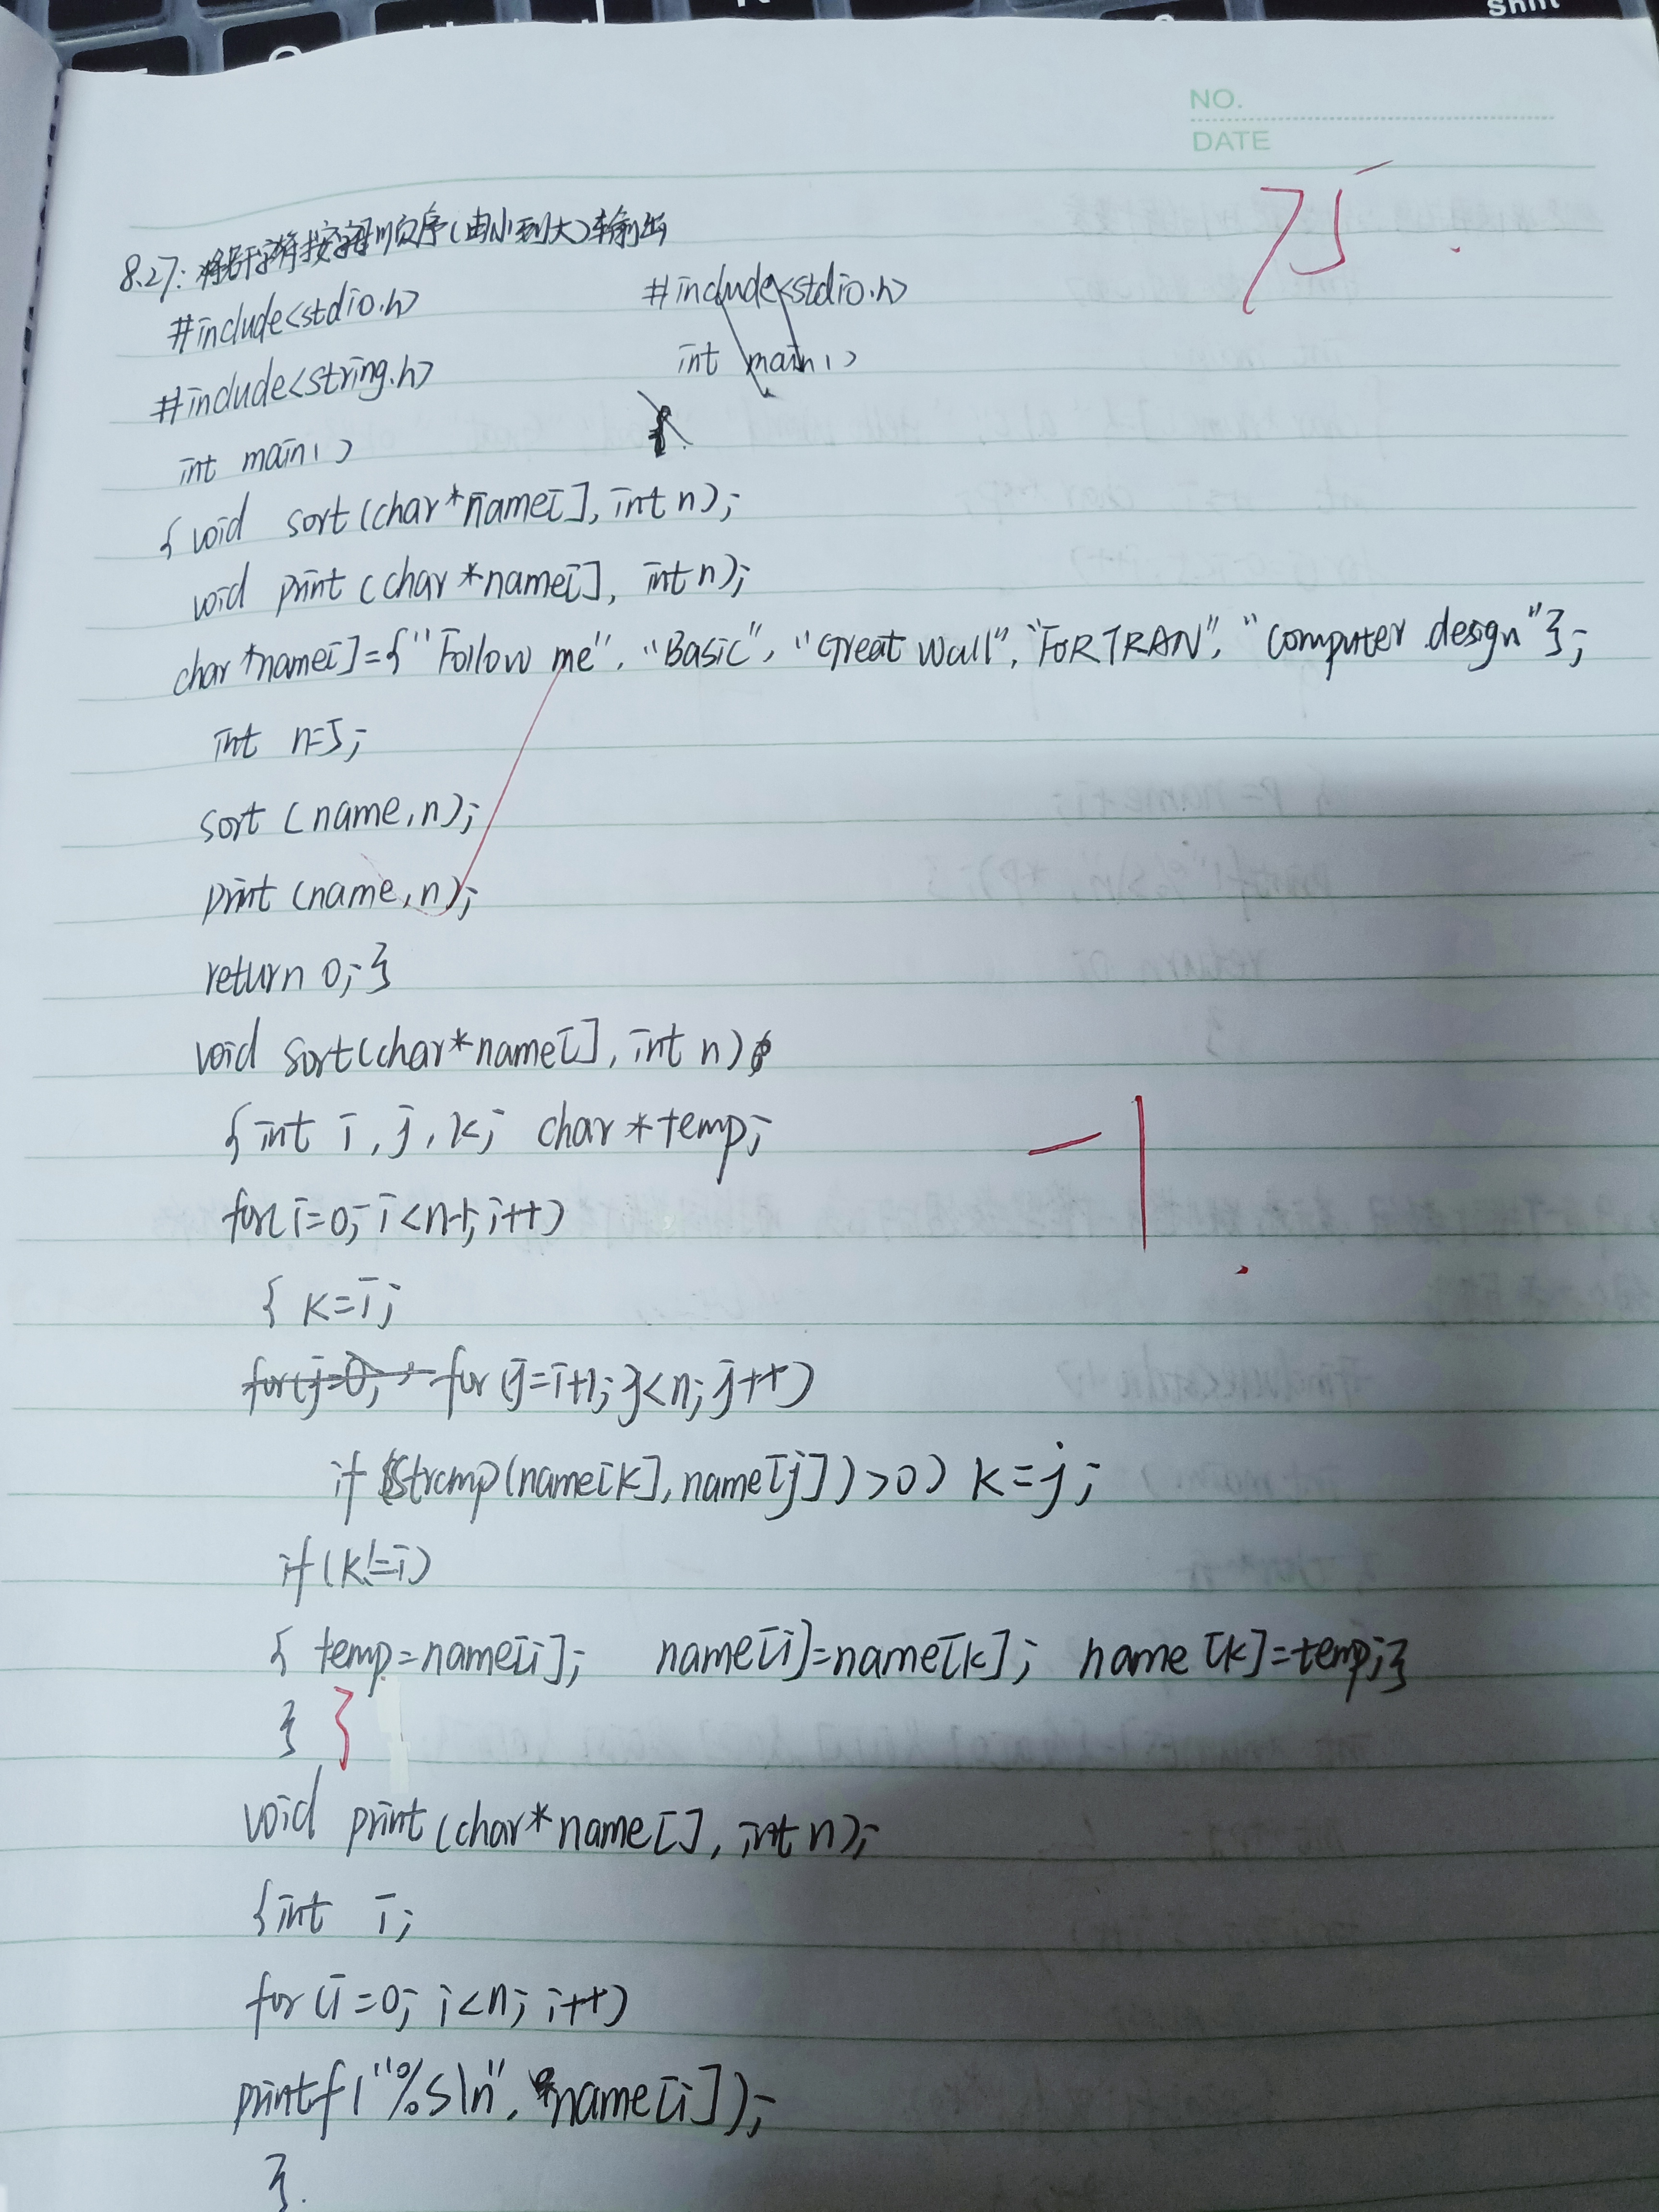 shift
NO.
DATE
75
8.27: 将若干字符串按字母顺序(由小到大)输出
#include<stdio.h>
#include<stdio.h>
int main()
#include<string.h>
int main()
{ void sort(char*name[], int n);
void print (char *name[], int n);
char *name[]={"Follow me", "Basic", "Great Wall", "FORTRAN", "Computer design"};
int n=5;
sort (name,n);
print (name,n);
return 0;}
void sort(char*name[], int n)
{int i, j, k; char *temp;
-1
for(i=0; i<n-1;i++)
{ k=i;
for(j=0; for (j=i+1; j<n; j++)
if (strcmp(name[k],name[j])>0) k=j;
if(k!=i)
{ temp=name[i]; name[i]=name[k]; name[k]=temp;}
} }
void print (char*name[], int n);
{int i;
for(i=0; i<n; i++)
printf("%s\n", name[i]);
}.